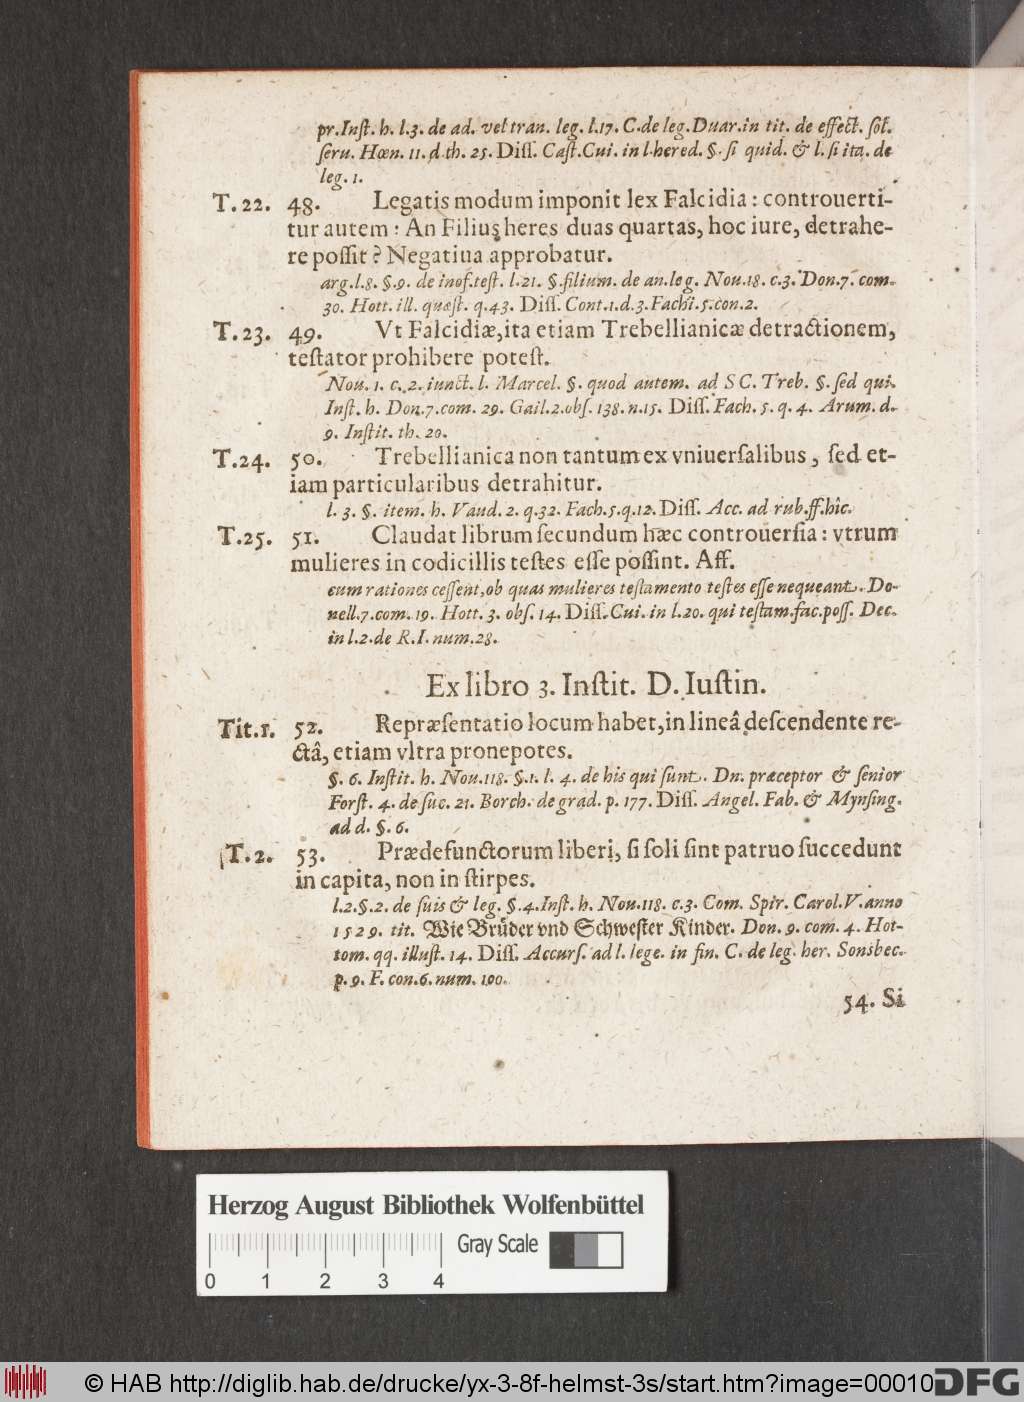 pr. Inſt. h. l. 3. de ad. vel tran. leg. l. 17. C. de leg. Duar. in tit. de effect. ſol.
ſeru. Hœn. 11. d. th. 25. Diſſ. Caſt. Cui. in l. hered. §. ſi quid. & l. ſi ita. de
leg. 1.
T. 22. 48. Legatis modum imponit lex Falcidia: controuerti-
tur autem: An Filius heres duas quartas, hoc iure, detrahe-
re poſſit? Negatiua approbatur.
arg. l. 8. §. 9. de inof. teſt. l. 21. §. filium. de an. leg. Nou. 18. c. 3. Don. 7. com.
30. Hott. ill. quæſt. q. 43. Diſſ. Cont. 1. d. 3. Fachi. 5. con. 2.
T. 23. 49. Vt Falcidiæ, ita etiam Trebellianicæ detractionem,
teſtator prohibere poteſt.
Nou. 1. c. 2. iunct. l. Marcel. §. quod autem. ad SC. Treb. §. ſed qui.
Inſt. h. Don. 7. com. 29. Gail. 2. obſ. 138. n. 15. Diſſ. Fach. 5. q. 4. Arum. d.
9. Inſtit. th. 20.
T. 24. 50. Trebellianica non tantum ex vniuerſalibus, ſed et-
iam particularibus detrahitur.
l. 3. §. item. h. Vaud. 2. q. 32. Fach. 5. q. 12. Diſſ. Acc. ad rub. ff. hîc.
T. 25. 51. Claudat librum ſecundum hæc controuerſia: vtrum
mulieres in codicillis teſtes eſſe poſſint. Aff.
cum rationes ceſſent, ob quas mulieres teſtamento teſtes eſſe nequeant. Do-
nell. 7. com. 19. Hott. 3. obſ. 14. Diſſ. Cui. in l. 20. qui teſtam. fac. poſſ. Dec.
in l. 2. de R. I. num. 28.
Ex libro 3. Inſtit. D. Iuſtin.
Tit. 1. 52. Repræſentatio locum habet, in lineâ deſcendente re-
ctâ, etiam vltra pronepotes.
§. 6. Inſtit. h. Nou. 118. §. 1. l. 4. de his qui ſunt. Dn. præceptor & ſenior
Forſt. 4. de ſuc. 21. Borch. de grad. p. 177. Diſſ. Angel. Fab. & Mynſing.
ad d. §. 6.
T. 2. 53. Prædefunctorum liberi, ſi ſoli ſint patruo ſuccedunt
in capita, non in ſtirpes.
l. 2. §. 2. de ſuis & leg. §. 4. Inſt. h. Nou. 118. c. 3. Com. Spir. Carol. V. anno
1529. tit. Wie Brüder vnd Schweſter Kinder. Don. 9. com. 4. Hot-
tom. qq. illuſt. 14. Diſſ. Accurſ. ad l. lege. in fin. C. de leg. her. Sonsbec.
p. 9. F. con. 6. num. 100.
54. Si
Herzog August Bibliothek Wolfenbüttel
Gray Scale
0 1 2 3 4
© HAB http://diglib.hab.de/drucke/yx-3-8f-helmst-3s/start.htm?image=00010
DFG